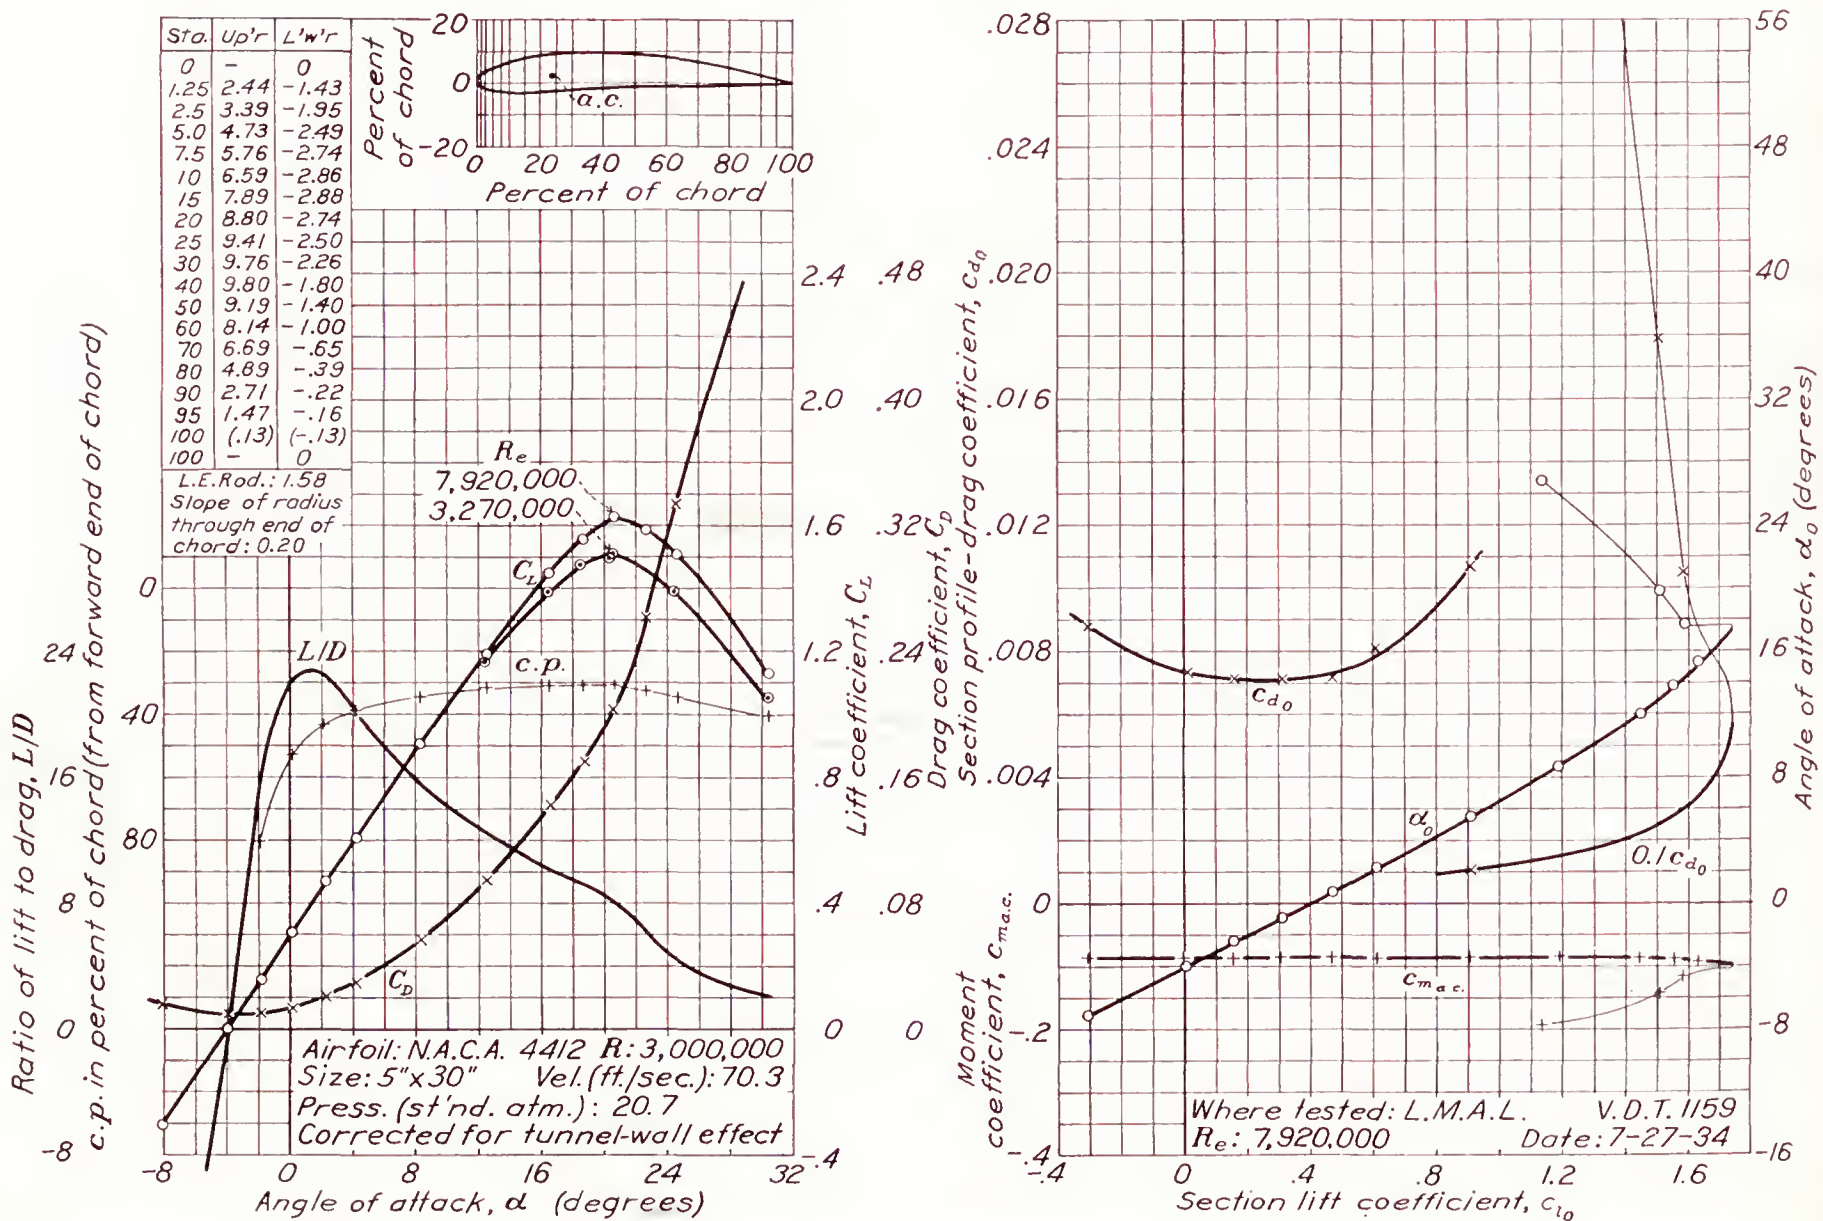 Sta. Up'r L'w'r
0 - 0
1.25 2.44 -1.43
2.5 3.39 -1.95
5.0 4.73 -2.49
7.5 5.76 -2.74
10 6.59 -2.86
15 7.89 -2.88
20 8.80 -2.74
25 9.41 -2.50
30 9.76 -2.26
40 9.80 -1.80
50 9.19 -1.40
60 8.14 -1.00
70 6.69 -.65
80 4.89 -.39
90 2.71 -.22
95 1.47 -.16
100 (.13) (-.13)
100 - 0
L.E.Rad.: 1.58
Slope of radius
through end of
chord: 0.20
Percent
of chord
20
0
-20
a.c.
0 20 40 60 80 100
Percent of chord
Ratio of lift to drag, L/D
24
16
8
0
-8
c.p. in percent of chord (from forward end of chord)
0
40
80
Re
7,920,000
3,270,000
CL
L/D
c.p.
CD
2.4 .48
2.0 .40
1.6 .32
1.2 .24
.8 .16
.4 .08
0 0
-.4
Lift coefficient, CL
Drag coefficient, CD
Airfoil: N.A.C.A. 4412 R: 3,000,000
Size: 5"x30" Vel.(ft./sec.): 70.3
Press.(st'nd. atm.): 20.7
Corrected for tunnel-wall effect
-8 0 8 16 24 32
Angle of attack, α (degrees)
Section profile-drag coefficient, cd0
.028
.024
.020
.016
.012
.008
.004
0
-.2
-.4
Moment
coefficient, cma.c.
cd0
α0
0.1cd0
cma.c.
56
48
40
32
24
16
8
0
-8
-16
Angle of attack, α0 (degrees)
Where tested: L.M.A.L. V.D.T. 1159
Re: 7,920,000 Date: 7-27-34
-.4 0 .4 .8 1.2 1.6
Section lift coefficient, cl0